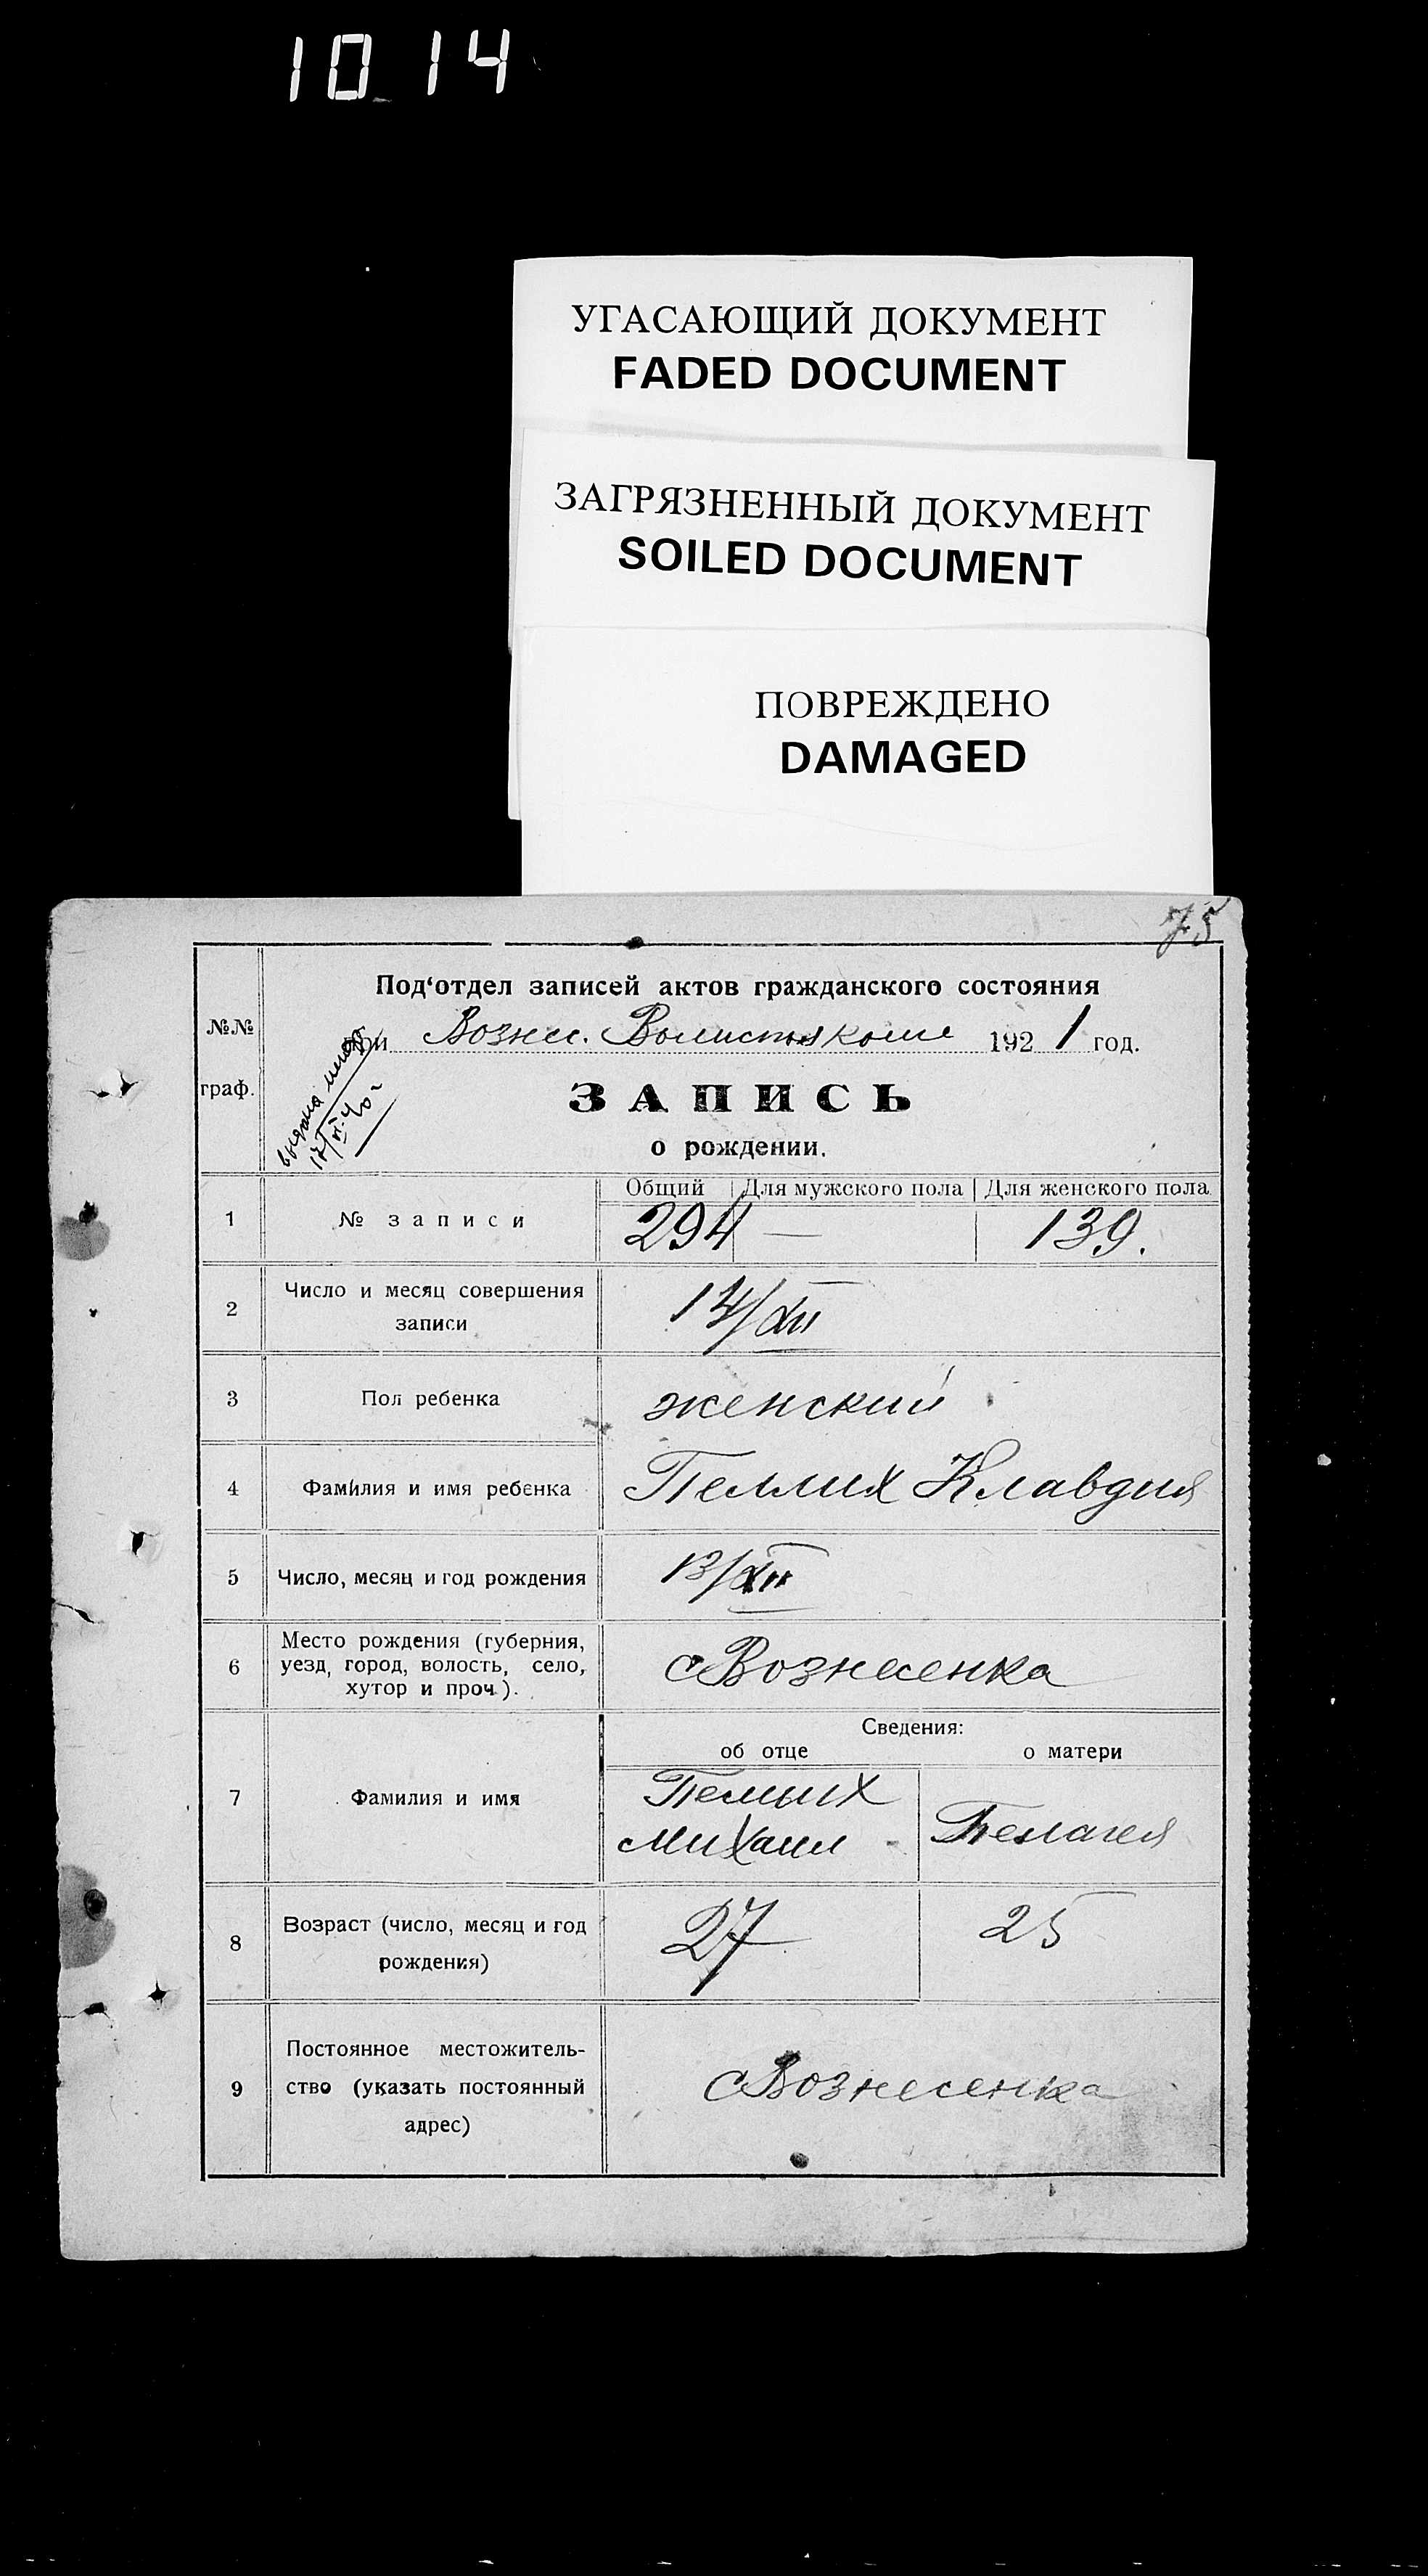 10 14
УГАСАЮЩИЙ ДОКУМЕНТ
FADED DOCUMENT
ЗАГРЯЗНЕННЫЙ ДОКУМЕНТ
SOILED DOCUMENT
ПОВРЕЖДЕНО
DAMAGED
75
№№
граф.
Под‘отдел записей актов гражданского состояния
при Вознес. 1921 год.
выдана
17/VI-40г
ЗАПИСЬ
о рождении.
1
№ записи
Общий
Для мужского пола
Для женского пола
294
—
139.
2
Число и месяц совершения
записи
14/XII
3
Пол ребенка
женский
4
Фамилия и имя ребенка
Клавдия
5
Число, месяц и год рождения
13/XII
6
Место рождения (губерния,
уезд, город, волость, село,
хутор и проч.).
с Вознесенка
7
Фамилия и имя
Сведения:
об отце
о матери
Михаил
Пелагея
8
Возраст (число, месяц и год
рождения)
27
25
9
Постоянное местожитель-
ство (указать постоянный
адрес)
с Вознесенка